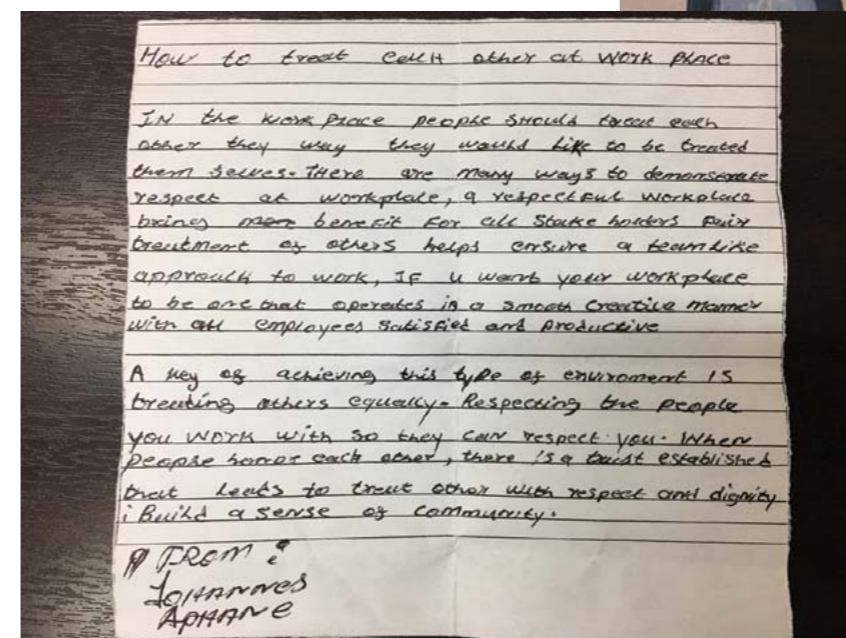 How to treat each other at work place
In the work place people should treat each
other they way they would like to be treated
them selves. There are many ways to demonstrate
respect at workplace, a respectful workplace
brings more benefit for all stake holders fair
treatment of others helps ensure a teamlike
approach to work, If u want your workplace
to be one that operates in a smooth creative manner
with all employees satisfied and productive
A key of achieving this type of enviroment is
treating others equally. Respecting the people
you work with so they can respect you. When
people honor each other, there is a trust established
that leads to treat other with respect and dignity
i Build a sense of community.
From:
Johannes
Aphane